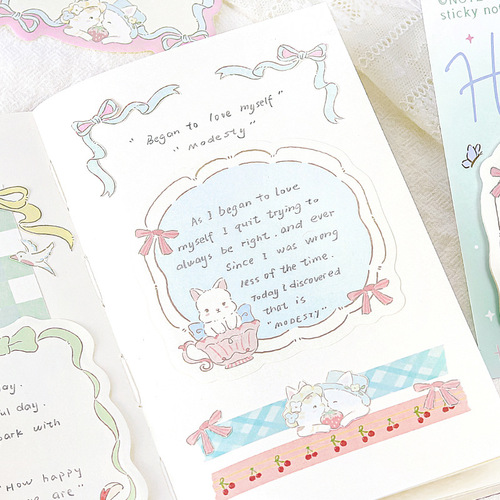 ©NOTE
sticky no
H
" Began to love myself "
" Modesty "
As I began to love
myself I quit trying to
always be right. and ever
Since I was wrong
less of the time.
Today I discovered
that is
"MODESTY"
ay.
ful day.
park with
"How happy
are"